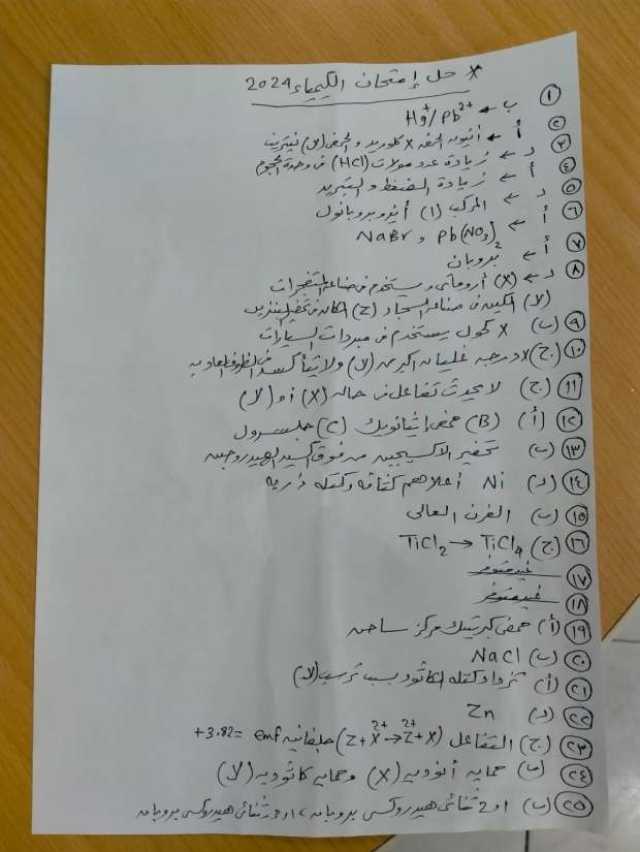 * حل إمتحان الكيمياء 2024
١ ب ← Hg⁺/Pb²⁺
٢ أ ← أنيون الحمض X كلوريد والحمض (y) نيتريت
٣ د ← زيادة عدد مولات (HCl) فى وحدة الحجوم
٤ أ ← زيادة الضغط و التبريد
٥ د ← المركب (1) أيزوبروبانول
٦ أ ← Pb(NO₃)₂ و NaBr
٧ أ ← بروبان
٨ د ← (X) أروماتى ويستخدم فى صناعة المتفجرات
(y) الكين فى صناعة السجاد (Z) الكان فى تحضير البنزين
٩ (ب) X كحول يستخدم فى مبردات السيارات
١٠ (ج) X درجة غليانه اكبر من (y) ولا يتأكسد فى الظروف العادية
١١ (ج) لا يحدث تفاعل فى حالة (X) أو (y)
١٢ (أ) (B) حمض إيثانويك (C) جلسرول
١٣ (ب) تحضير الاكسيجين من فوق اكسيد الهيدروجين
١٤ (د) Ni أعلاهم كثافة وكتلة ذرية
١٥ (ب) الفرن العالى
١٦ (ج) TiCl₂ → TiCl₄
١٧ غير متوفر
١٨ غير متوفر
١٩ (أ) حمض كبريتيك مركز ساخن
٢٠ (ب) NaCl
٢١ (أ) تزداد كتلة الكاثود بسبب ترسب (y)
٢٢ (د) Zn
٢٣ (ج) التفاعل (Z+X²⁺→Z²⁺+X) جلفانية emf = +3.82
٢٤ (ب) حماية أنودية (X) وحماية كاثودية (y)
٢٥ (ب) 1و2 ثنائى هيدروكسى بروبان، 1و3 ثنائى هيدروكسى بروبان